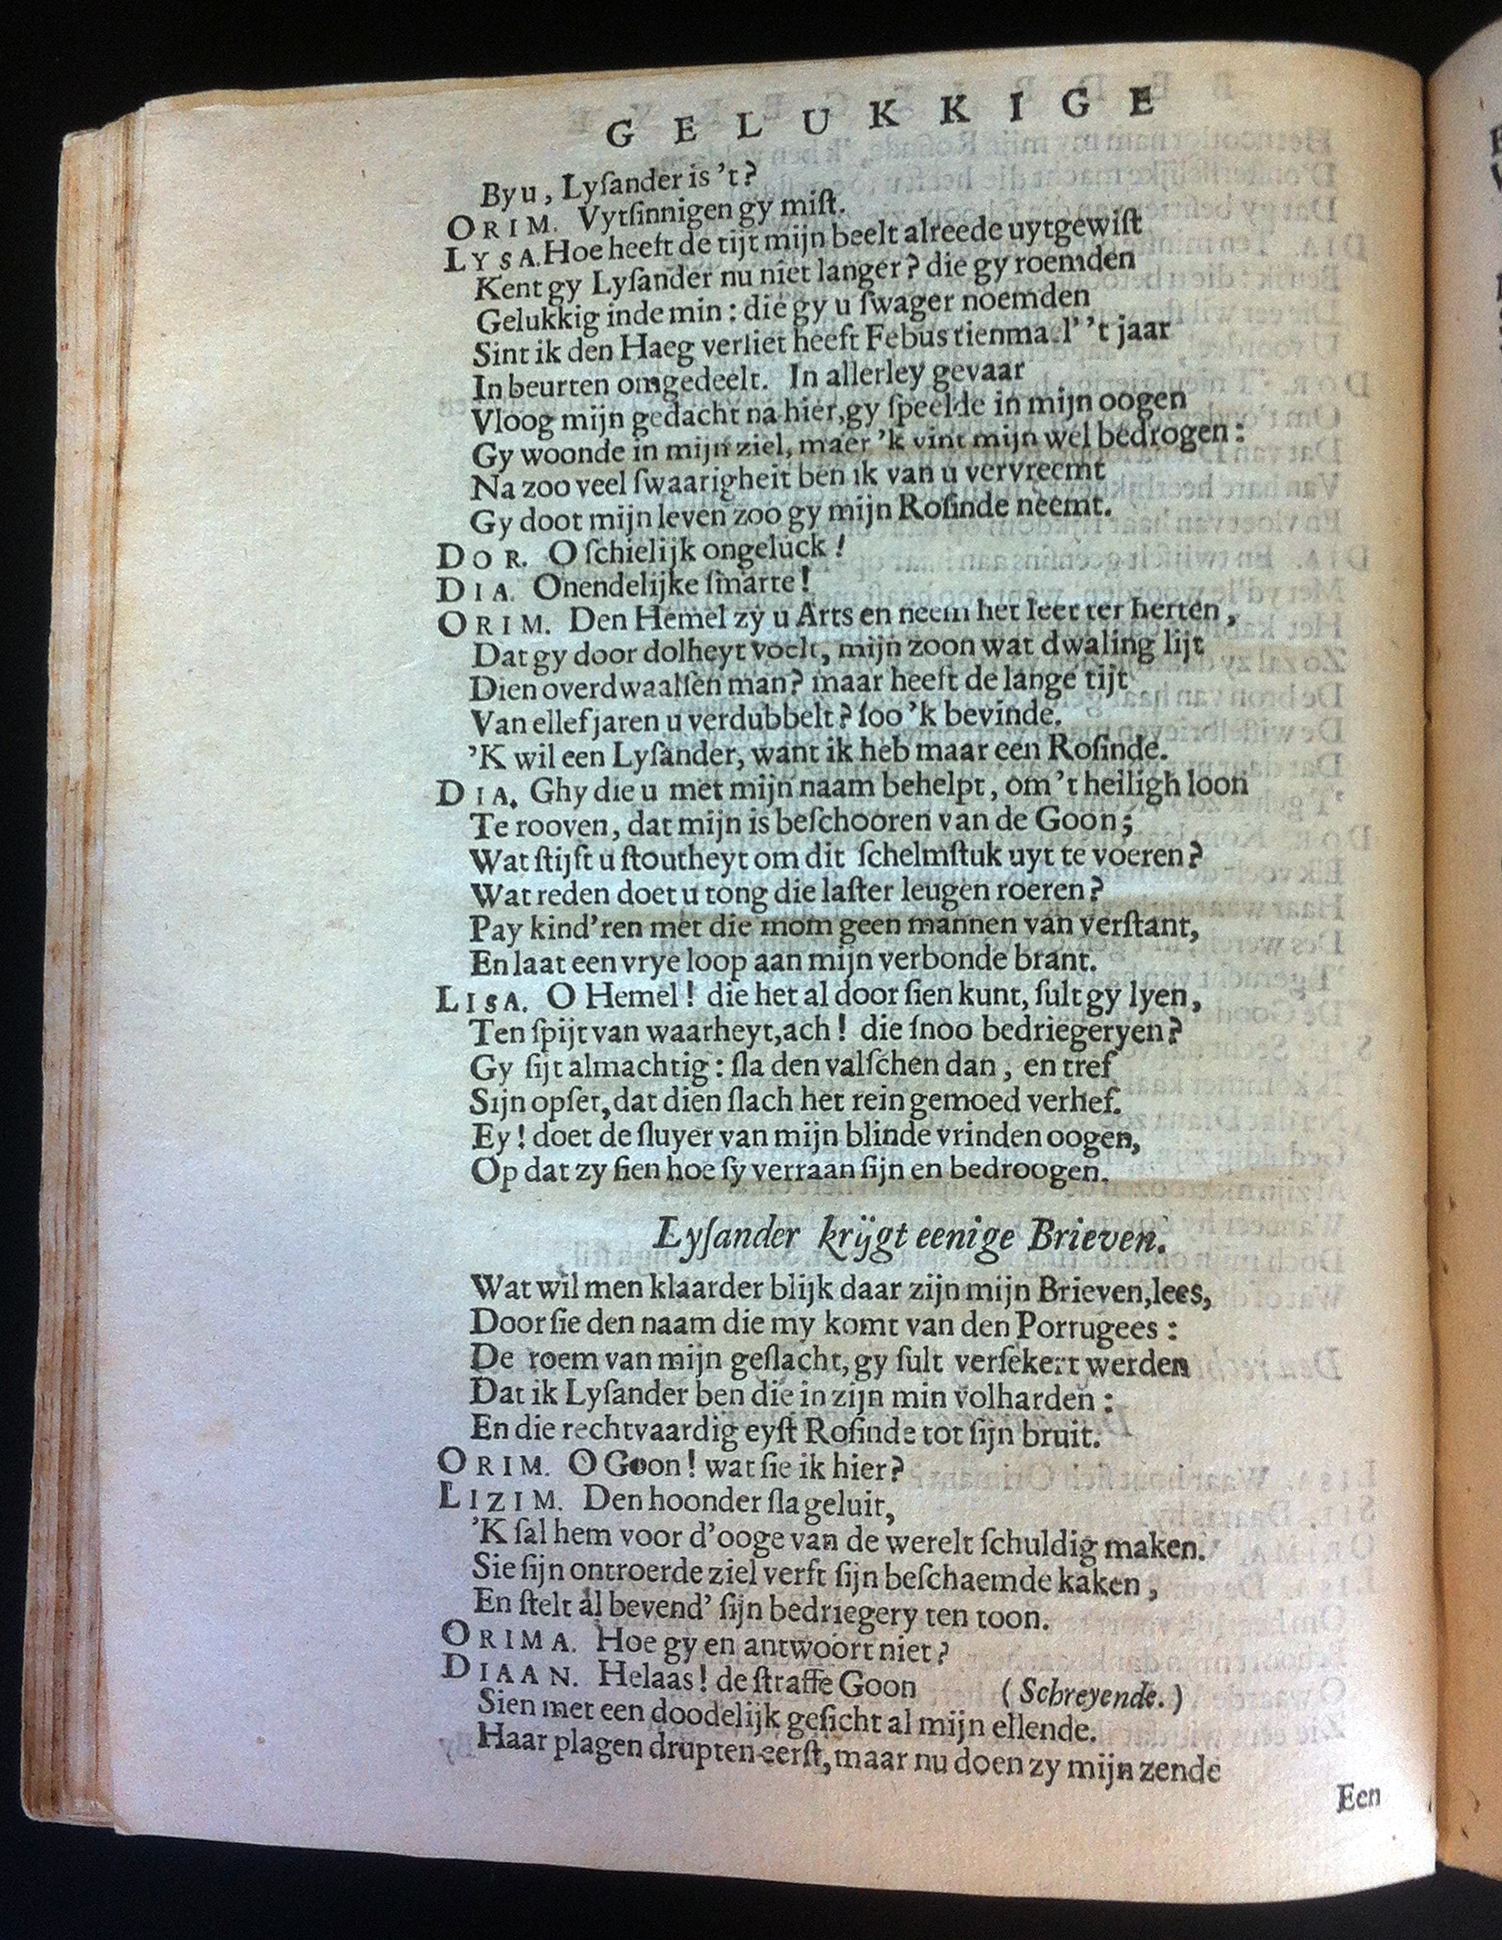 GELUKKIGE
By u, Lyſander is 't?
ORIM. Vytſinnigen gy miſt.
LYSA. Hoe heeft de tijt mijn beelt alreede uytgewiſt
Kent gy Lyſander nu niet langer? die gy roemden
Gelukkig inde min: die gy u ſwager noemden
Sint ik den Haeg verliet heeft Febus tienmael' 't jaar
In beurten omgedeelt. In allerley gevaar
Vloog mijn gedacht na hier, gy ſpeelde in mijn oogen
Gy woonde in mijn ziel, maer 'k vint mijn wel bedrogen:
Na zoo veel ſwaarigheit ben ik van u vervreemt
Gy doot mijn leven zoo gy mijn Roſinde neemt.
DOR. O ſchielijk ongeluck!
DIA. Onendelijke ſmarte!
ORIM. Den Hemel zy u Arts en neem het leet ter herten,
Dat gy door dolheyt voelt, mijn zoon wat dwaling lijt
Dien overdwaalſen man? maar heeft de lange tijt
Van ellef jaren u verdubbelt? ſoo 'k bevinde.
'K wil een Lyſander, want ik heb maar een Roſinde.
DIA. Ghy die u met mijn naam behelpt, om 't heiligh loon
Te rooven, dat mijn is beſchooren van de Goon;
Wat ſtijſt u ſtoutheyt om dit ſchelmſtuk uyt te voeren?
Wat reden doet u tong die laſter leugen roeren?
Pay kind'ren met die mom geen mannen van verſtant,
En laat een vrye loop aan mijn verbonde brant.
LISA. O Hemel! die het al door ſien kunt, ſult gy lyen,
Ten ſpijt van waarheyt, ach! die ſnoo bedriegeryen?
Gy ſijt almachtig: ſla den valſchen dan, en tref
Sijn opſet, dat dien ſlach het rein gemoed verhef.
Ey! doet de ſluyer van mijn blinde vrinden oogen,
Op dat zy ſien hoe ſy verraan ſijn en bedroogen.
Lyſander krijgt eenige Brieven.
Wat wil men klaarder blijk daar zijn mijn Brieven, lees,
Door ſie den naam die my komt van den Porrugees:
De roem van mijn geſlacht, gy ſult verſekert werden
Dat ik Lyſander ben die in zijn min volharden:
En die rechtvaardig eyſt Roſinde tot ſijn bruit.
ORIM. O Goon! wat ſie ik hier?
LIZIM. Den hoonder ſla geluit,
'K ſal hem voor d'ooge van de werelt ſchuldig maken.
Sie ſijn ontroerde ziel verft ſijn beſchaemde kaken,
En ſtelt al bevend' ſijn bedriegery ten toon.
ORIMA. Hoe gy en antwoort niet?
DIAAN. Helaas! de ſtraffe Goon (Schreyende.)
Sien met een doodelijk geſicht al mijn ellende.
Haar plagen drupten eerſt, maar nu doen zy mijn zende
Een